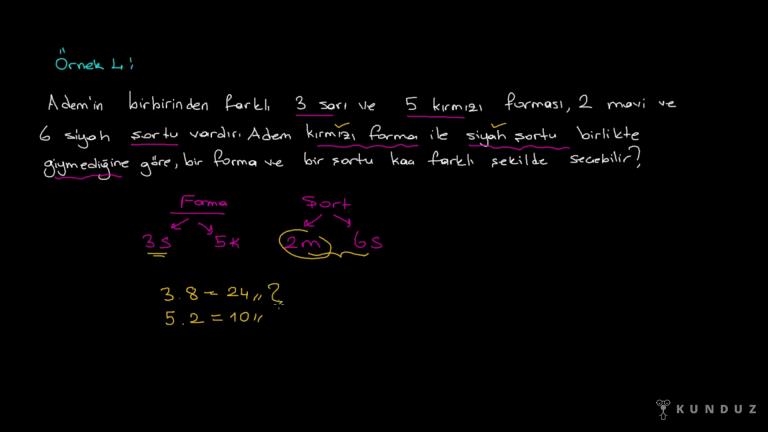 Örnek 4:
Adem'in birbirinden farklı 3 sarı ve 5 kırmızı forması, 2 mavi ve
6 siyah şortu vardır. Adem kırmızı forma ile siyah şortu birlikte
giymediğine göre, bir forma ve bir şortu kaç farklı şekilde seçebilir?
Forma Şort
3s 5k 2m 6s
3.8 = 24 ?
5.2 = 10
KUNDUZ